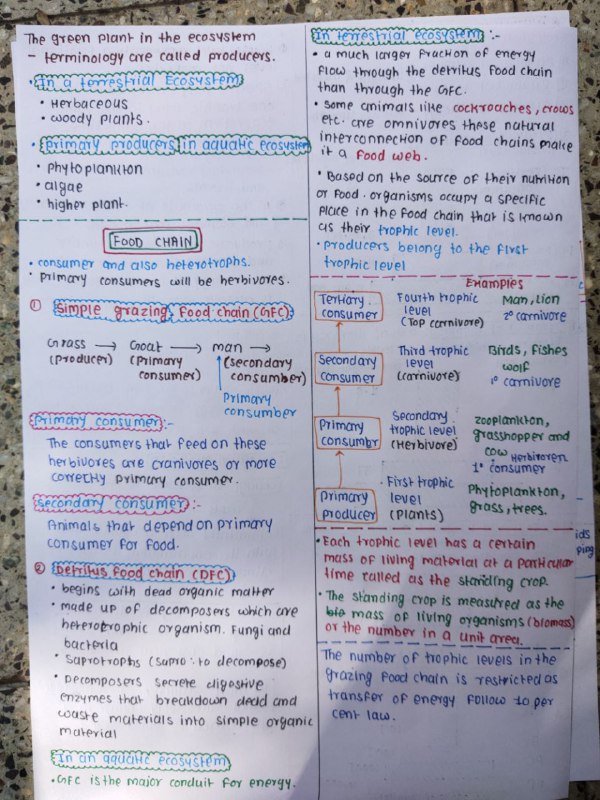 The green plant in the ecosystem
- terminology are called producers.
• In a terrestrial Ecosystem
• Herbaceous
• woody plants.
• primary producers in aquatic ecosystem
• phytoplankton
• algae
• higher plant.
FOOD CHAIN
• consumer and also heterotrophs.
• primary consumers will be herbivores.
① Simple grazing Food chain (GFC)
Grass → Goat → man →
(producer) (Primary (secondary
consumer) consumber)
Primary
consumber
primary consumer:-
The consumers that feed on these
herbivores are cranivores or more
correctly primary consumer.
secondary consumer:-
Animals that depend on primary
consumer for food.
② Detritus Food chain (DFC)
• begins with dead organic matter
• made up of decomposers which are
heterotrophic organism. Fungi and
bacteria
• saprotrophs (sapro: to decompose)
• Decomposers secrete digestive
enzymes that breakdown dead and
waste materials into simple organic
material
In an aquatic ecosystem
• GFC is the major conduit for energy.
In terrestrial ecosystem :-
• a much larger fraction of energy
flow through the detritus food chain
than through the GFC.
• some animals like cockroaches, crows
etc. are omnivores these natural
interconnection of food chains make
it a food web.
• Based on the source of their nutrition
or food. organisms occupy a specific
place in the food chain that is known
as their trophic level.
• producers belong to the first
trophic level
Examples
Tertiary Fourth trophic Man, Lion
consumer level 2° carnivore
(Top carnivore)
Secondary Third trophic Birds, fishes
consumer level wolf
(carnivore) 1° carnivore
Primary Secondary zooplankton,
consumbr trophic level grasshopper and
(Herbivore) cow Herbivoren
1° consumer
Primary First trophic Phytoplankton,
producer level grass, trees.
(Plants)
• Each trophic level has a certain
mass of living material at a particular
time called as the standing crop.
• The standing crop is measured as the
bio mass of living organisms (biomass)
or the number in a unit area.
The number of trophic levels in the
grazing food chain is restricted as
transfer of energy follow to per
cent law.
ids
ping